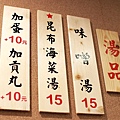 湯品
味噌湯
15
★昆布海菜湯
15
加蛋+10元
加貢丸+10元